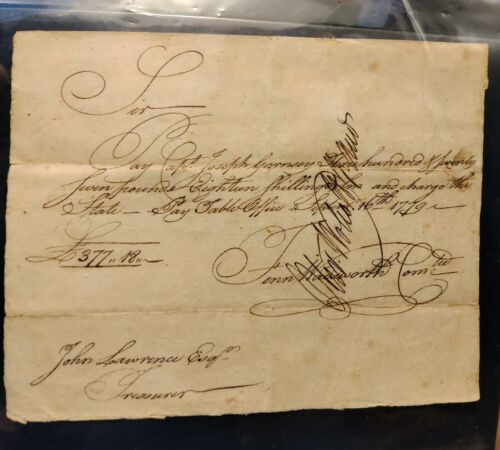 Sir
Pay Capt Joseph Garnsey Three hundred & seventy
Seven pounds Eighteen Shillings and charge the
State — Pay Table Office 16th 1779
£377,, 18,,
Fenn Wadsworth Comtee
John Lawrence Esqr
Treasurer